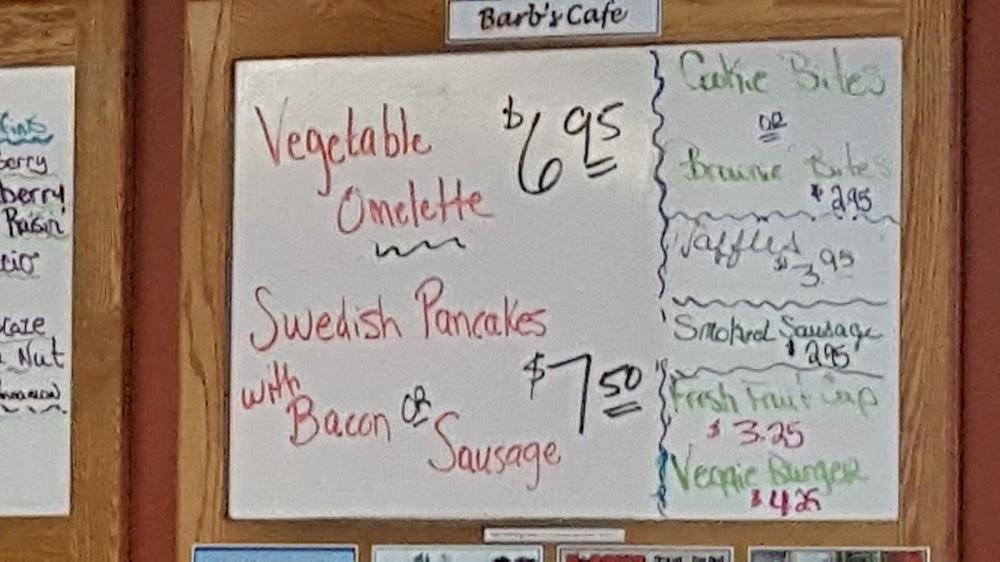 Barb's Cafe
Vegetable $6.95
Omelette
Swedish Pancakes
with $7.50
Bacon OR
Sausage
Cookie Bites
OR
Brownie Bites
$2.95
Waffles
$3.95
Smoked Sausage
$2.95
Fresh Fruit Cup
$3.25
Veggie Burger
$4.25
berry
berry
Raisin
Nut